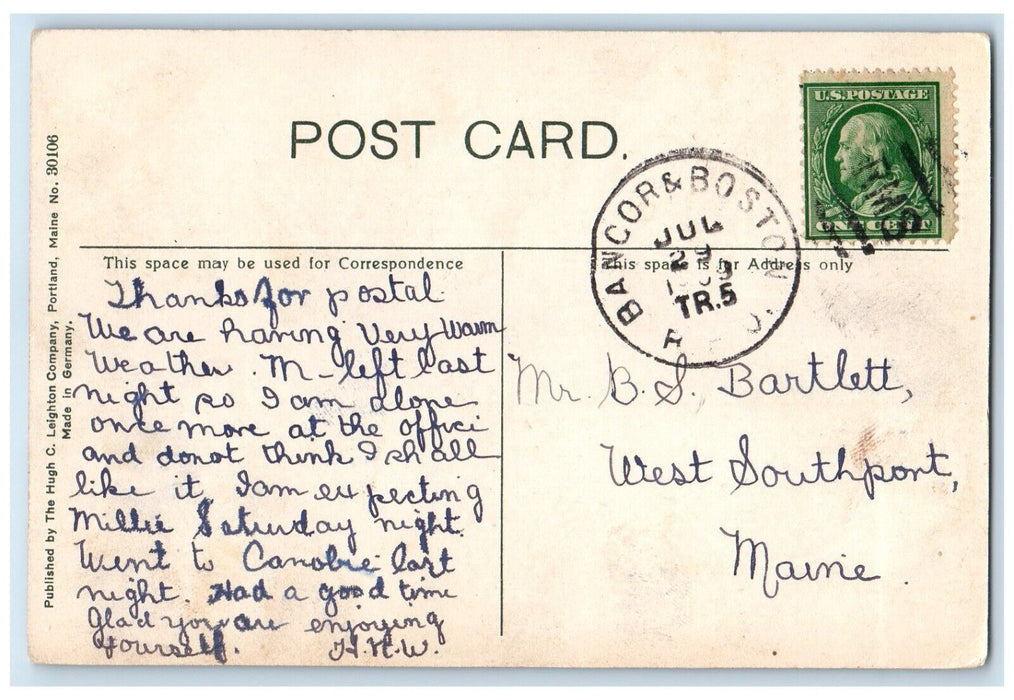 POST CARD.
U.S. POSTAGE
ONE CENT
RMS
BANGOR & BOSTON
JUL
29
TR.5
R. P. O.
Published by The Hugh C. Leighton Company, Portland, Maine No. 30106
Made in Germany.
This space may be used for Correspondence
This space is for Address only
Thanks for postal
We are having Very Warm
Weather. M- left last
night so I am alone
once more at the office
and donot think I shall
like it. I am expecting
Millie Saturday night.
Went to Canobie last
night. Had a good time
Glad you are enjoying
yourself. H.H.W.
Mr. B. S. Bartlett,
West Southport,
Maine.